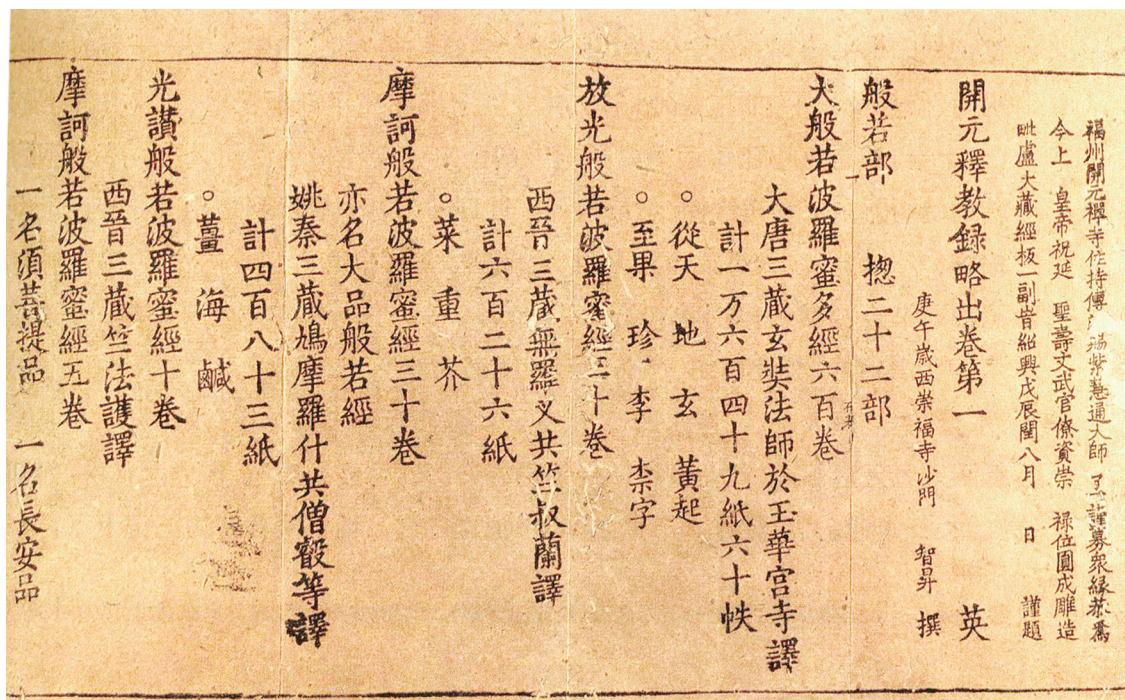 福州開元禪寺住持傳 賜紫慧通大師 了一謹募衆緣恭爲
今上 皇帝祝延 聖壽文武官僚資崇 禄位圓成雕造
毗盧大藏經板一副旹紹興戊辰閏八月 日 謹題
開元釋教録略出卷第一 英
庚午歲西崇福寺沙門 智昇 撰
般若部 揔二十二部
大般若波羅蜜多經六百卷
大唐三藏玄奘法師於玉華宫寺譯
計一万六百四十九紙六十帙
○從天 地 玄 黄起
○至果 珍 李 柰字
放光般若波羅蜜經三十卷
西晉三藏無羅叉共竺叔蘭譯
計六百二十六紙
○菜 重 芥
摩訶般若波羅蜜經三十卷
亦名大品般若經
姚秦三藏鳩摩羅什共僧叡等譯
計四百八十三紙
○薑 海 鹹
光讚般若波羅蜜經十卷
西晉三藏竺法護譯
摩訶般若波羅蜜經五卷
一名須菩提品 一名長安品